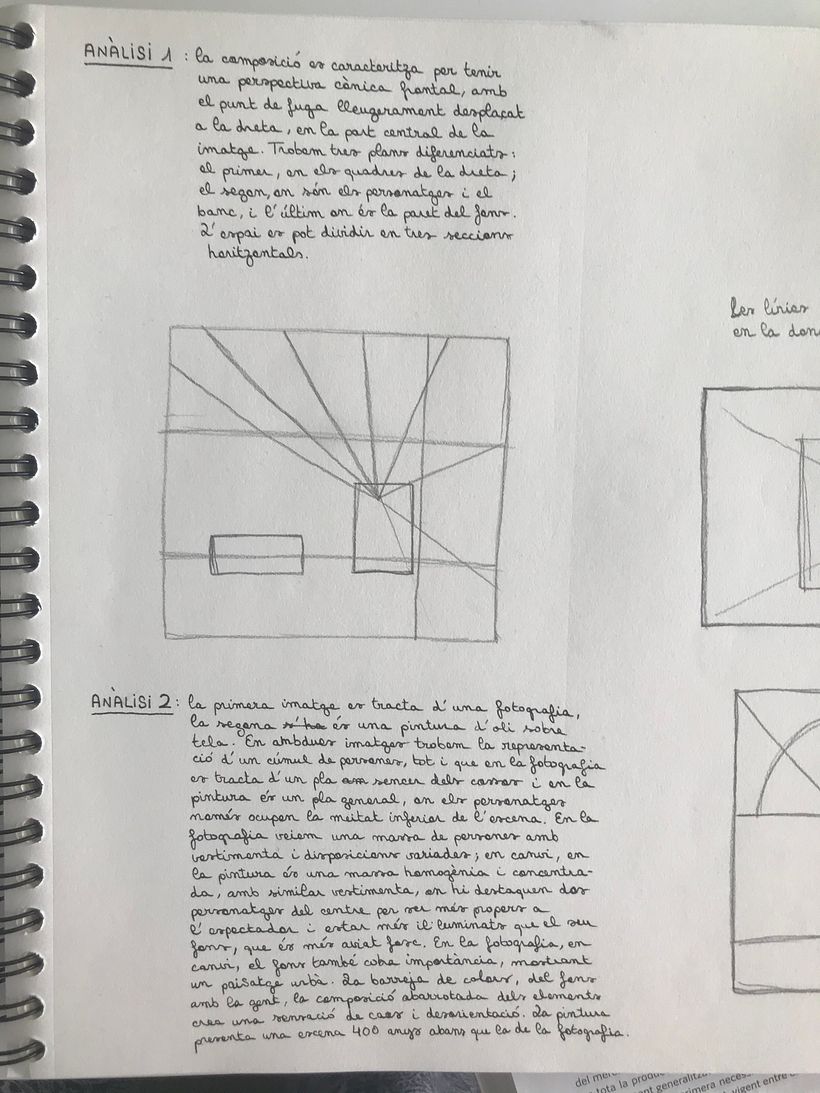 ANÀLISI 1 : la composició es caracteritza per tenir
una perspectiva cònica frontal, amb
el punt de fuga lleugerament desplaçat
a la dreta, en la part central de la
imatge. Trobem tres plans diferenciats:
el primer, en els quadres de la dreta;
el segon, on són els personatges i el
banc, i l'últim on és la paret del fons.
L'espai es pot dividir en tres seccions
horitzontals.
Les línies
en la don
ANÀLISI 2: la primera imatge es tracta d'una fotografia,
la segona s'ha és una pintura d'oli sobre
tela. En ambdues imatges trobem la representa-
ció d'un cúmul de persones, tot i que en la fotografia
es tracta d'un pla sencer dels cossos i en la
pintura és un pla general, on els personatges
només ocupen la meitat inferior de l'escena. En la
fotografia veiem una massa de persones amb
vestimenta i disposicions variades; en canvi, en
la pintura és una massa homogènia i concentra-
da, amb similar vestimenta, on hi destaquen dos
personatges del centre per ser més propers a
l'espectador i estar més il·luminats que el seu
fons, que és més aviat fosc. En la fotografia, en
canvi, el fons també cobra importància, mostrant
un paisatge urbà. La barreja de colors, del fons
amb la gent, la composició abarrotada dels elements
crea una sensació de caos i desorientació. La pintura
presenta una escena 400 anys abans que la de la fotografia.
del mer
tota la produc
nt generalitza
rimera neces
vigent entre